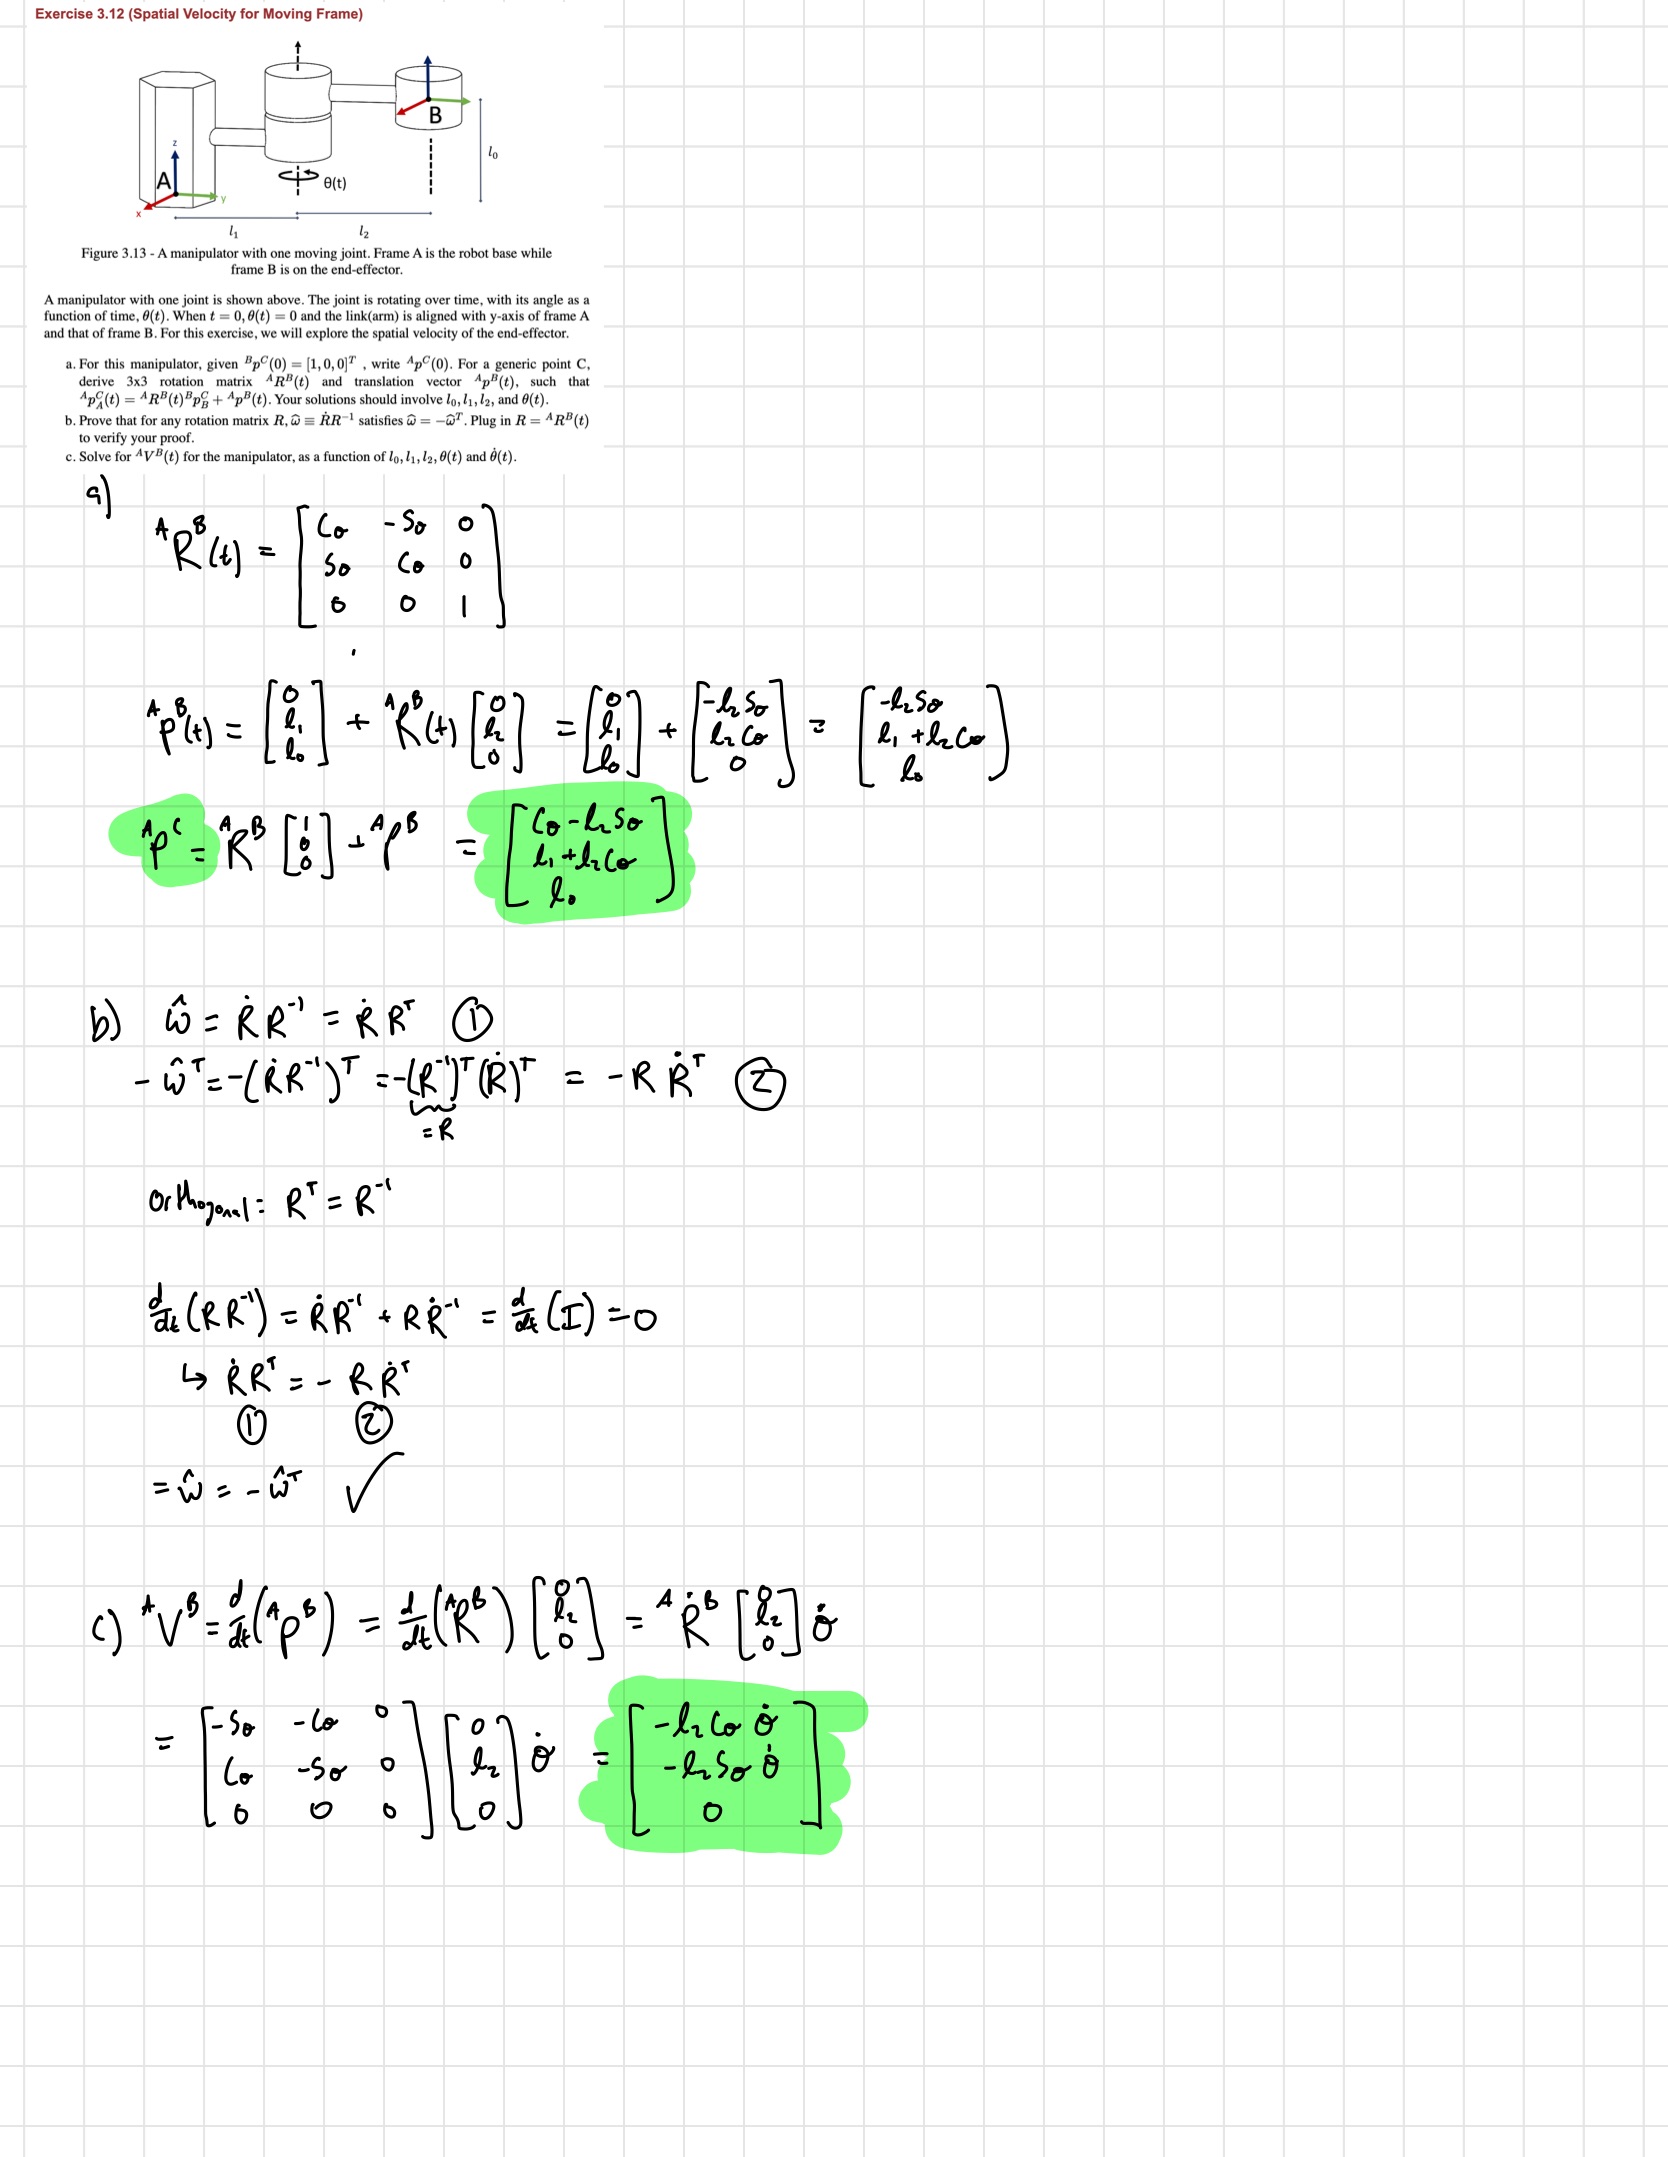 Exercise 3.12 (Spatial Velocity for Moving Frame)
A
z
y
x
B
θ(t)
l₀
l₁
l₂
Figure 3.13 - A manipulator with one moving joint. Frame A is the robot base while
frame B is on the end-effector.
A manipulator with one joint is shown above. The joint is rotating over time, with its angle as a
function of time, θ(t). When t = 0, θ(t) = 0 and the link(arm) is aligned with y-axis of frame A
and that of frame B. For this exercise, we will explore the spatial velocity of the end-effector.
a. For this manipulator, given ᴮpᶜ(0) = [1, 0, 0]ᵀ , write ᴬpᶜ(0). For a generic point C,
derive 3x3 rotation matrix ᴬRᴮ(t) and translation vector ᴬpᴮ(t), such that
ᴬp_A^C(t) = ᴬRᴮ(t)ᴮp_B^C + ᴬpᴮ(t). Your solutions should involve l₀, l₁, l₂, and θ(t).
b. Prove that for any rotation matrix R, ω̂ ≡ ṘR⁻¹ satisfies ω̂ = −ω̂ᵀ. Plug in R = ᴬRᴮ(t)
to verify your proof.
c. Solve for ᴬVᴮ(t) for the manipulator, as a function of l₀, l₁, l₂, θ(t) and θ̇(t).
a)
ᴬRᴮ(t) = [Cθ -Sθ 0; Sθ Cθ 0; 0 0 1]
ᴬPᴮ(t) = [0; l₁; l₀] + ᴬRᴮ(t) [0; l₂; 0] = [0; l₁; l₀] + [-l₂Sθ; l₂Cθ; 0] = [-l₂Sθ; l₁ + l₂Cθ; l₀]
ᴬPᶜ = ᴬRᴮ [1; 0; 0] + ᴬPᴮ = [Cθ - l₂Sθ; l₁ + l₂Cθ; l₀]
b) ŵ = Ṙ R⁻¹ = Ṙ Rᵀ ①
- ŵᵀ = -(Ṙ R⁻¹)ᵀ = -(R⁻¹)ᵀ (Ṙ)ᵀ = -R Ṙᵀ ②
= R
Orthogonal: Rᵀ = R⁻¹
d/dt (R R⁻¹) = Ṙ R⁻¹ + R Ṙ⁻¹ = d/dt (I) = 0
↳ Ṙ Rᵀ = - R Ṙᵀ
① ②
= ŵ = - ŵᵀ ✓
c) ᴬVᴮ = d/dt (ᴬPᴮ) = d/dt (ᴬRᴮ) [0; l₂; 0] = ᴬṘᴮ [0; l₂; 0] θ̇
= [-Sθ -Cθ 0; Cθ -Sθ 0; 0 0 0] [0; l₂; 0] θ̇ = [-l₂Cθ θ̇; -l₂Sθ θ̇; 0]